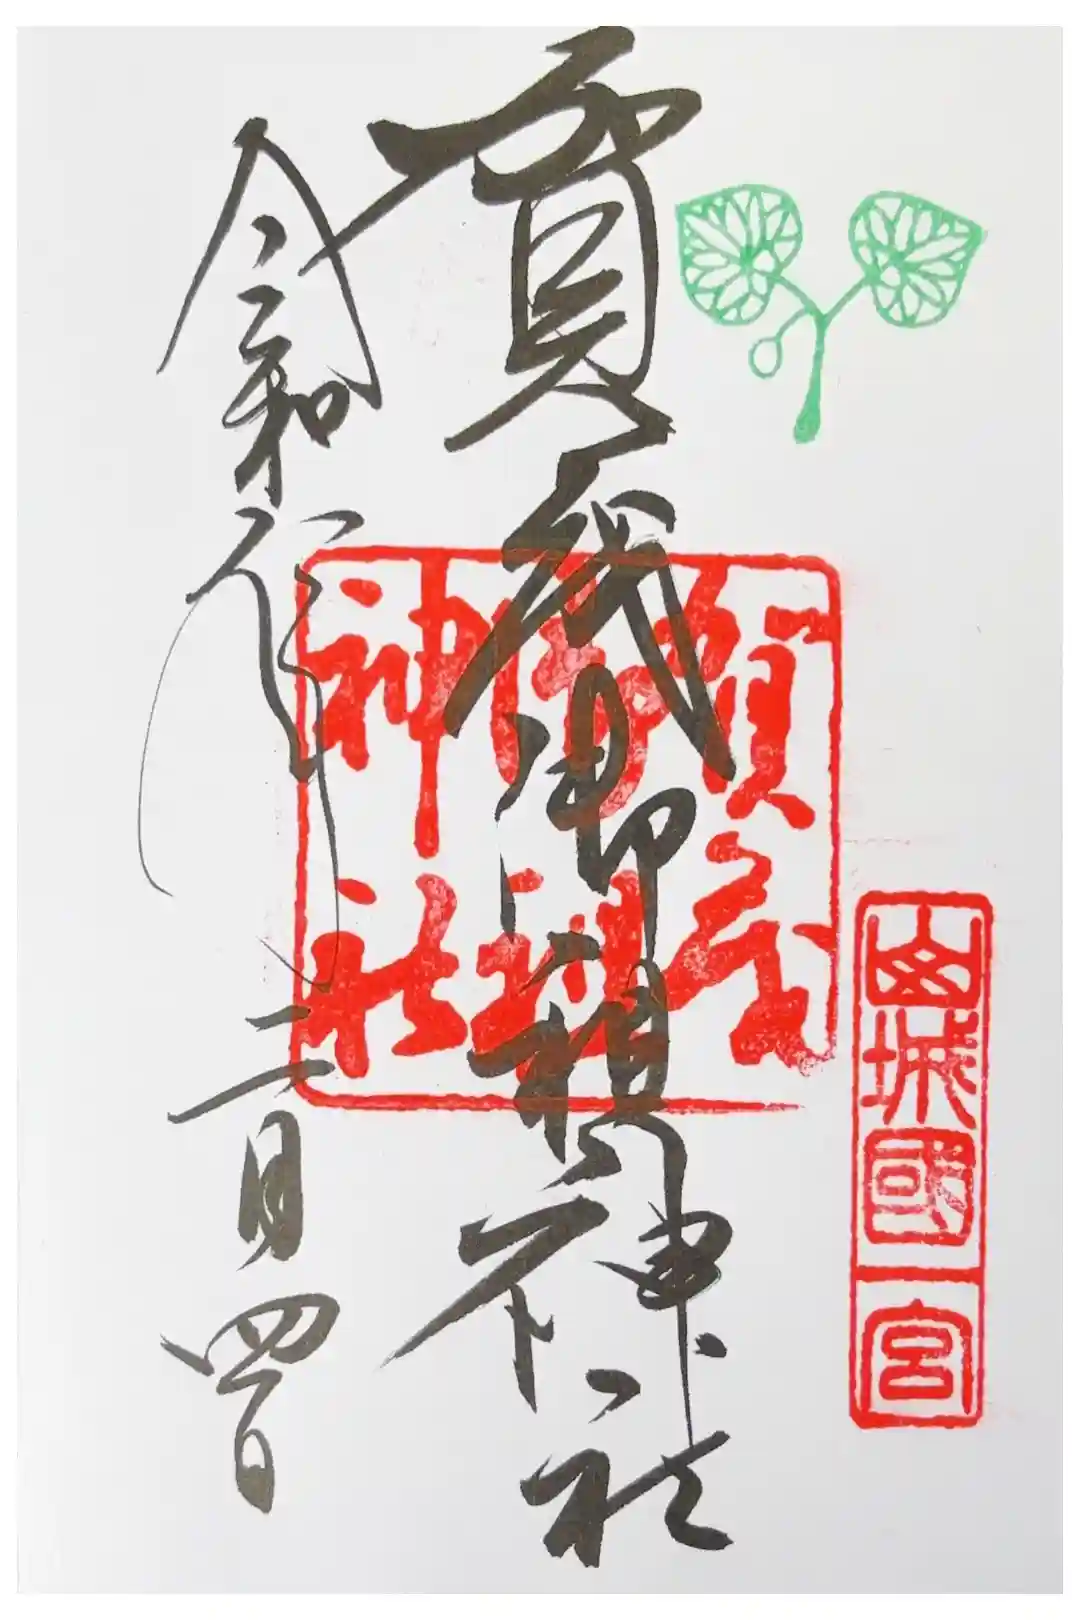 山城國一宮
賀茂御祖神社
賀茂
御祖
神社
令和 二月四日